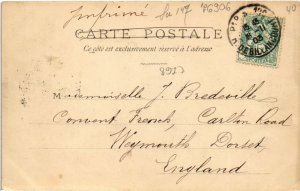 Imprimé
A6306
CARTE POSTALE
Ce côté est exclusivement réservé à l'adresse
8923
Mademoiselle J. Bredeville
Convent French, Carlton Road
Weymouth Dorset,
England